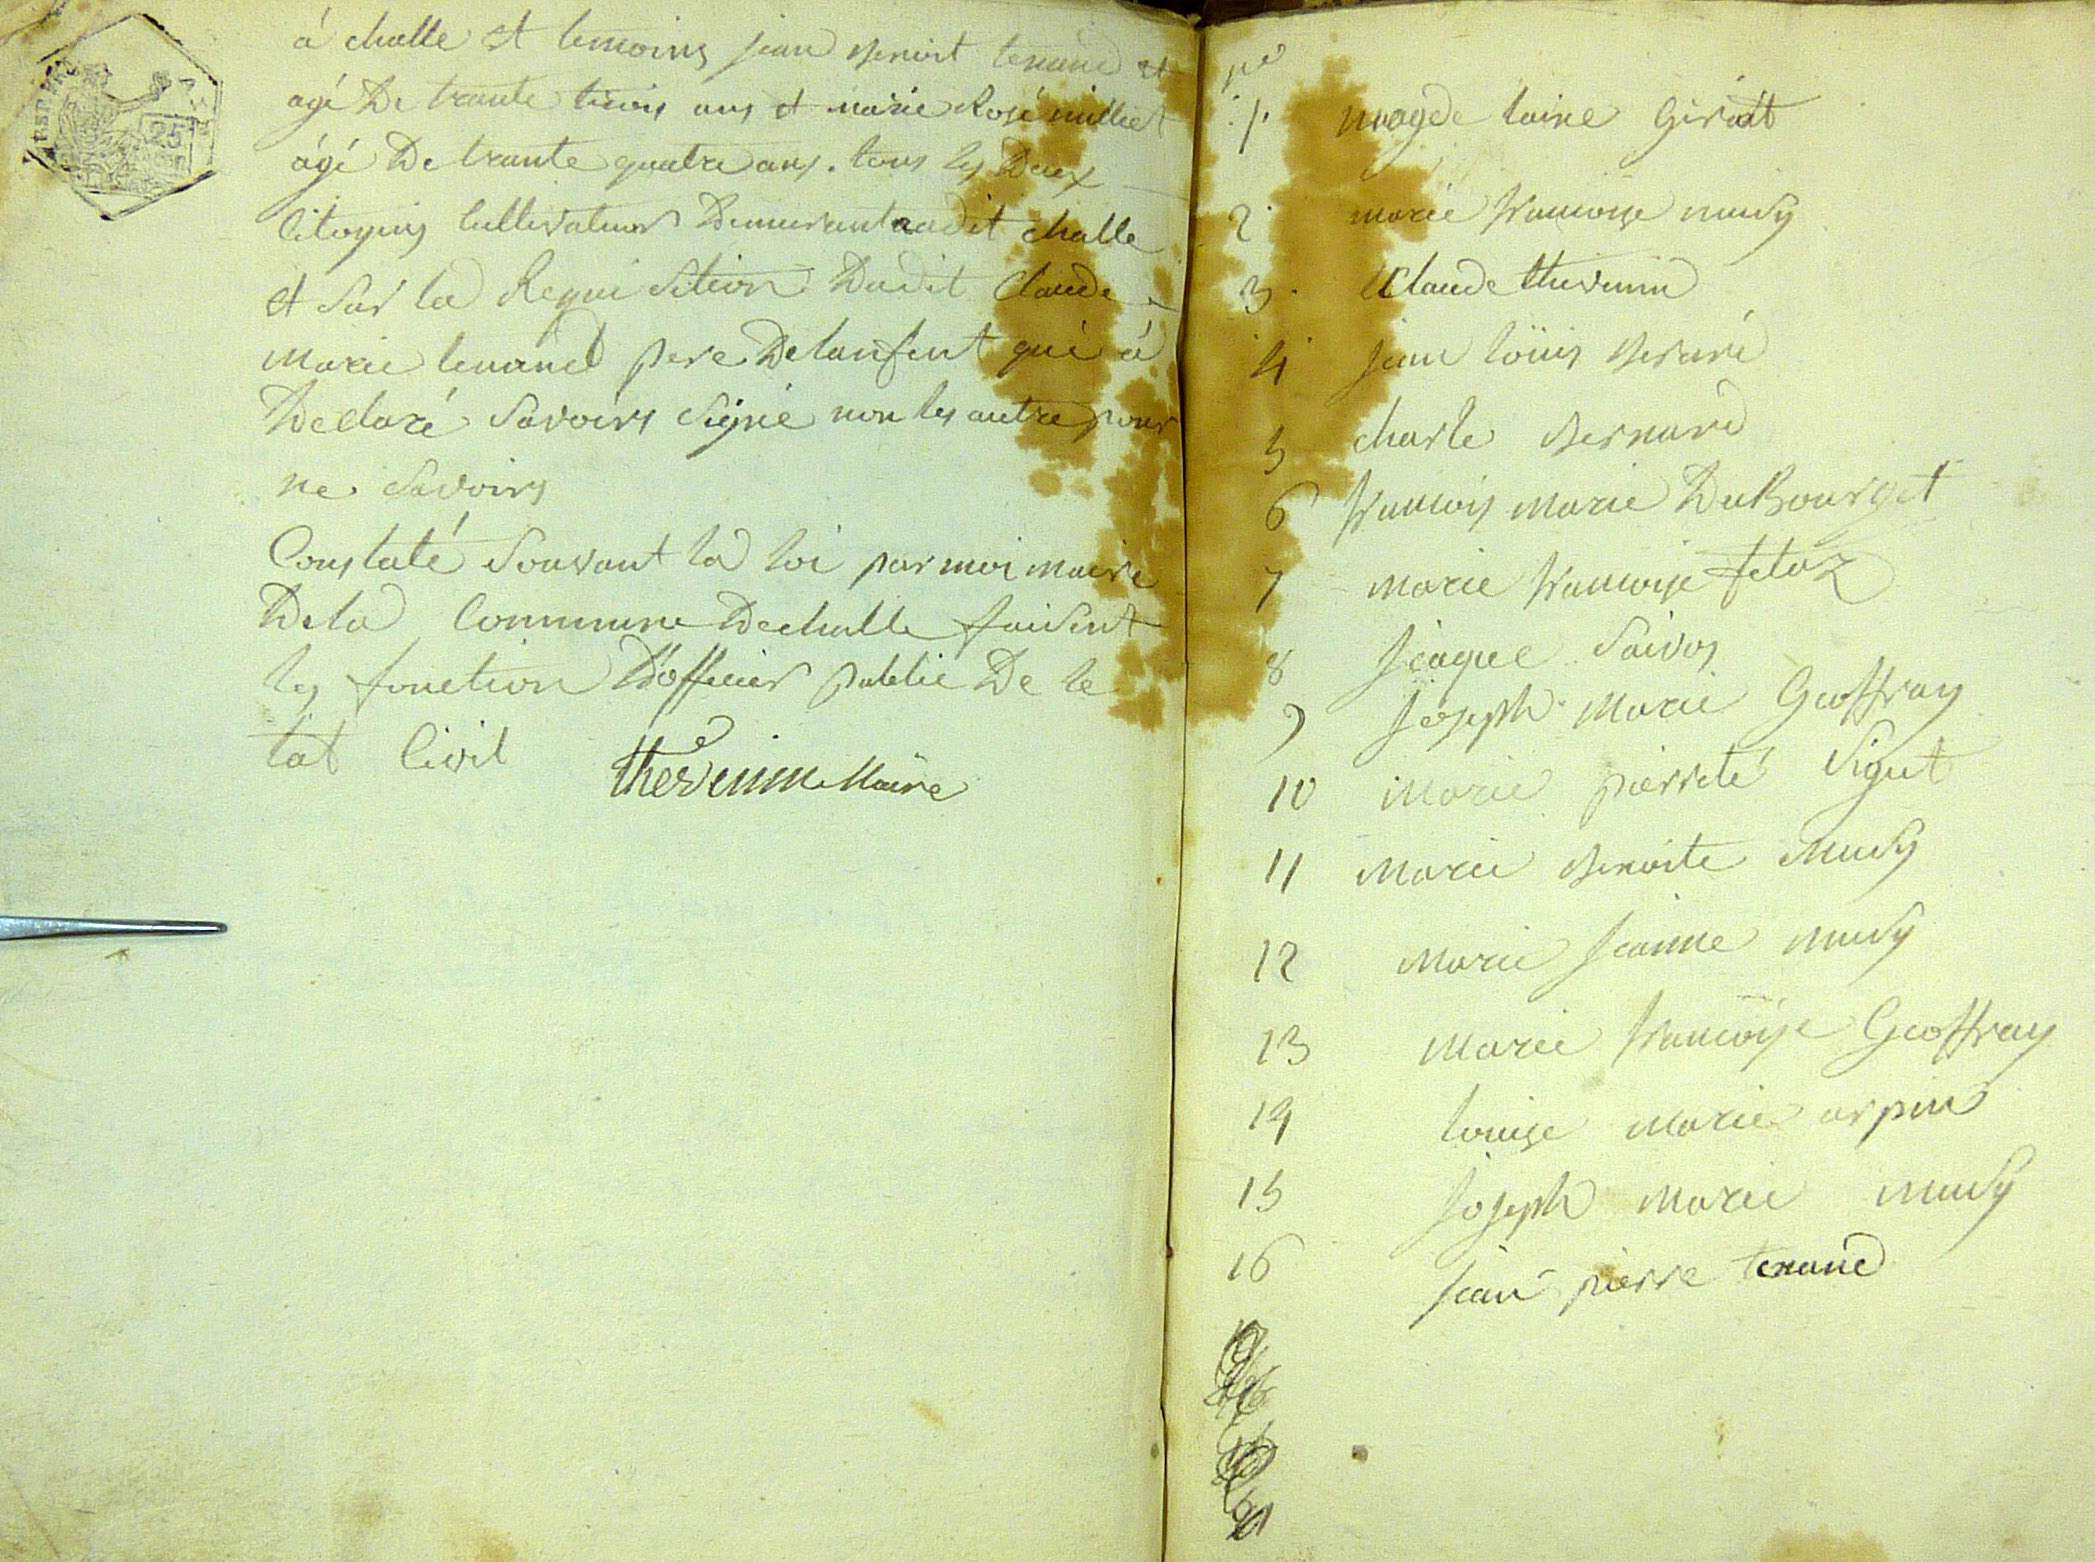 25
à challe et temoins jean Benoit tenand et
agé De trante trois ans et marie Rose milliet
agé De trante quatre ans. tous les Deux
Citoyins Cultivateur Demeurant audit challe
et sur la Requisition Dudit Claude
Marie tenand pere Delanfent qui à
Declaré Savoirs Signé non les autre pour
ne Savoirs
Constaté Souvant la loi par moi maire
De la Commune Dechalle faisent
les fonction D'officier public De le
tat Civil
thevenin Maire
1. magdelaine Girodt
2. marie francoise musy
3. Claude thevenin
4 jean loüis
5 charle Bernard
6 francois marie DuBourget
7 marie francoise fetaz
8 jcaque
9 joseph marie Geoffray
10 marie pierreté Sigut
11 marie Benoite musy
12 marie jeanne musy
13 marie francoise Geoffray
14 louise marie arpin
15 joseph marie musy
16 jean pierre tenand